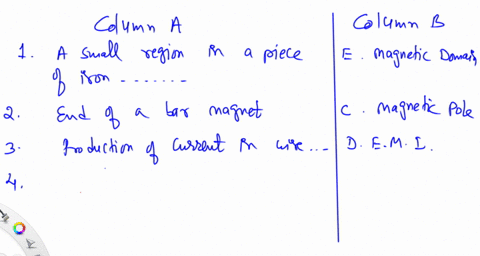 Column A Column B
1. A small region in a piece E. magnetic Domain,
of iron .......
2. End of a bar magnet C. Magnetic Pole
3. Production of current in wire... D. E.M.I.
4.